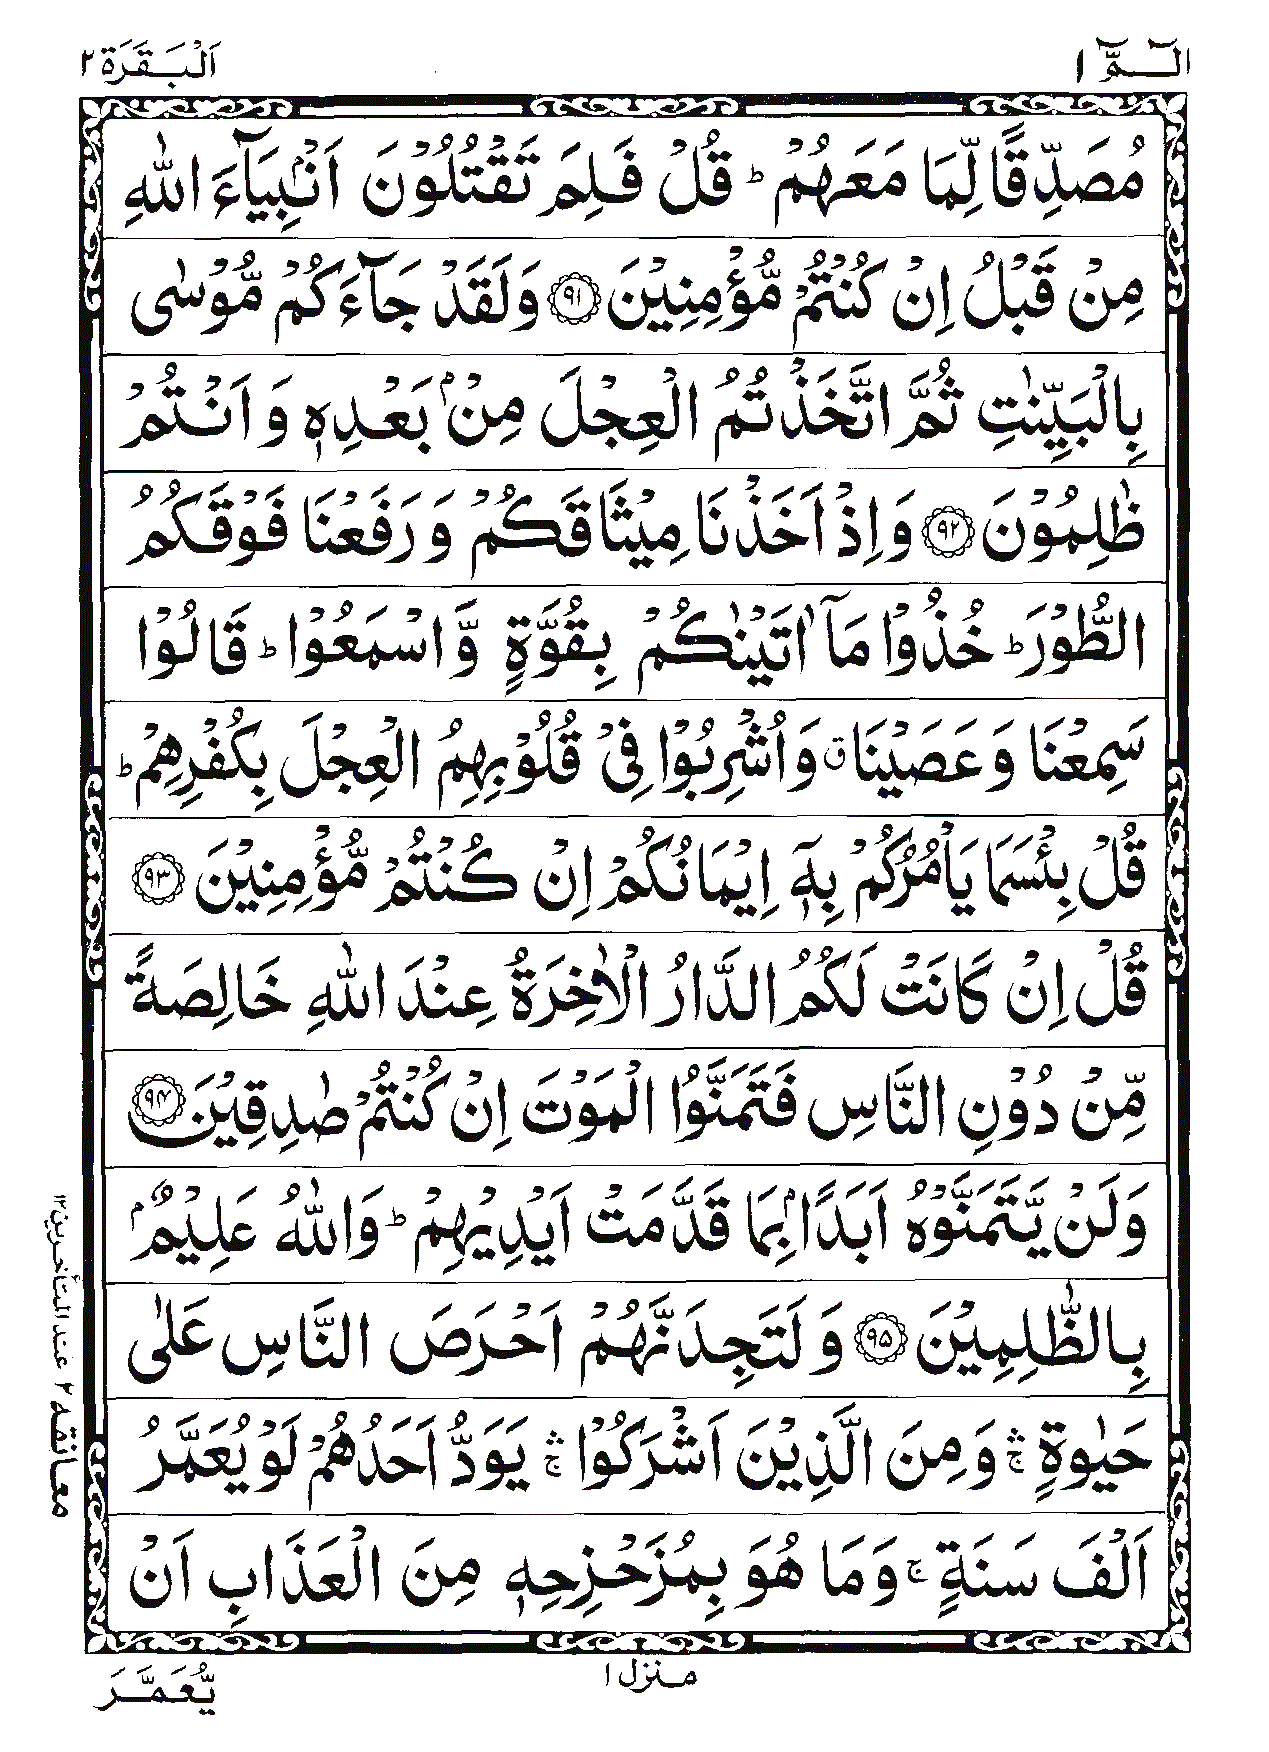 الٓـمّٓ ١
اَلْبَقَرَة ٢
مُصَدِّقًا لِّمَا مَعَهُمْ ؕ قُلْ فَلِمَ تَقْتُلُوْنَ اَنْۢبِيَآءَ اللّٰهِ
مِنْ قَبْلُ اِنْ كُنْتُمْ مُّؤْمِنِيْنَ ﴿۹۱﴾ وَلَقَدْ جَآءَكُمْ مُّوْسٰى
بِالْبَيِّنٰتِ ثُمَّ اتَّخَذْتُمُ الْعِجْلَ مِنْۢ بَعْدِهٖ وَاَنْتُمْ
ظٰلِمُوْنَ ﴿۹۲﴾ وَاِذْ اَخَذْنَا مِيْثَاقَكُمْ وَرَفَعْنَا فَوْقَكُمُ
الطُّوْرَ ؕ خُذُوْا مَاۤ اٰتَيْنٰكُمْ بِقُوَّةٍ وَّاسْمَعُوْا ؕ قَالُوْا
سَمِعْنَا وَعَصَيْنَا ۗ وَاُشْرِبُوْا فِيْ قُلُوْبِهِمُ الْعِجْلَ بِكُفْرِهِمْ ؕ
قُلْ بِئْسَمَا يَاْمُرُكُمْ بِهٖۤ اِيْمَانُكُمْ اِنْ كُنْتُمْ مُّؤْمِنِيْنَ ﴿۹۳﴾
قُلْ اِنْ كَانَتْ لَكُمُ الدَّارُ الْاٰخِرَةُ عِنْدَ اللّٰهِ خَالِصَةً
مِّنْ دُوْنِ النَّاسِ فَتَمَنَّوُا الْمَوْتَ اِنْ كُنْتُمْ صٰدِقِيْنَ ﴿۹۴﴾
وَلَنْ يَّتَمَنَّوْهُ اَبَدًاۢ بِمَا قَدَّمَتْ اَيْدِيْهِمْ ؕ وَاللّٰهُ عَلِيْمٌۢ
بِالظّٰلِمِيْنَ ﴿۹۵﴾ وَلَتَجِدَنَّهُمْ اَحْرَصَ النَّاسِ عَلٰى
حَيٰوةٍ ۛۚ وَمِنَ الَّذِيْنَ اَشْرَكُوْا ۛۚ يَوَدُّ اَحَدُهُمْ لَوْ يُعَمَّرُ
اَلْفَ سَنَةٍ ۚ وَمَا هُوَ بِمُزَحْزِحِهٖ مِنَ الْعَذَابِ اَنْ
معانقه ۲ عند المتأخرين ۱۲
منزل ١
يُّعَمَّرَ